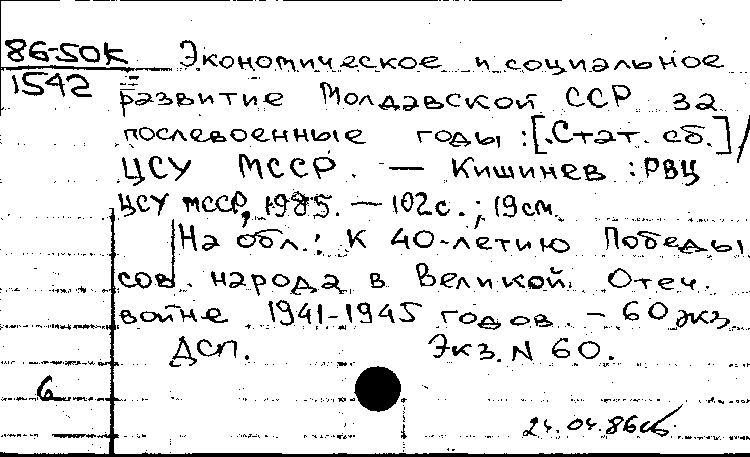 86-50К Экономическое и социальное
1542 развитие Молдавской ССР за
послевоенные годы : [Стат. сб.] /
ЦСУ МССР. — Кишинев : РВЦ
ЦСУ МССР, 1985. — 102 с. ; 19 см.
На обл.: К 40-летию Победы
сов. народа в Великой Отеч.
войне 1941-1945 годов. - 60 экз.
ДСП. Экз. N 60.
6
24.04.86